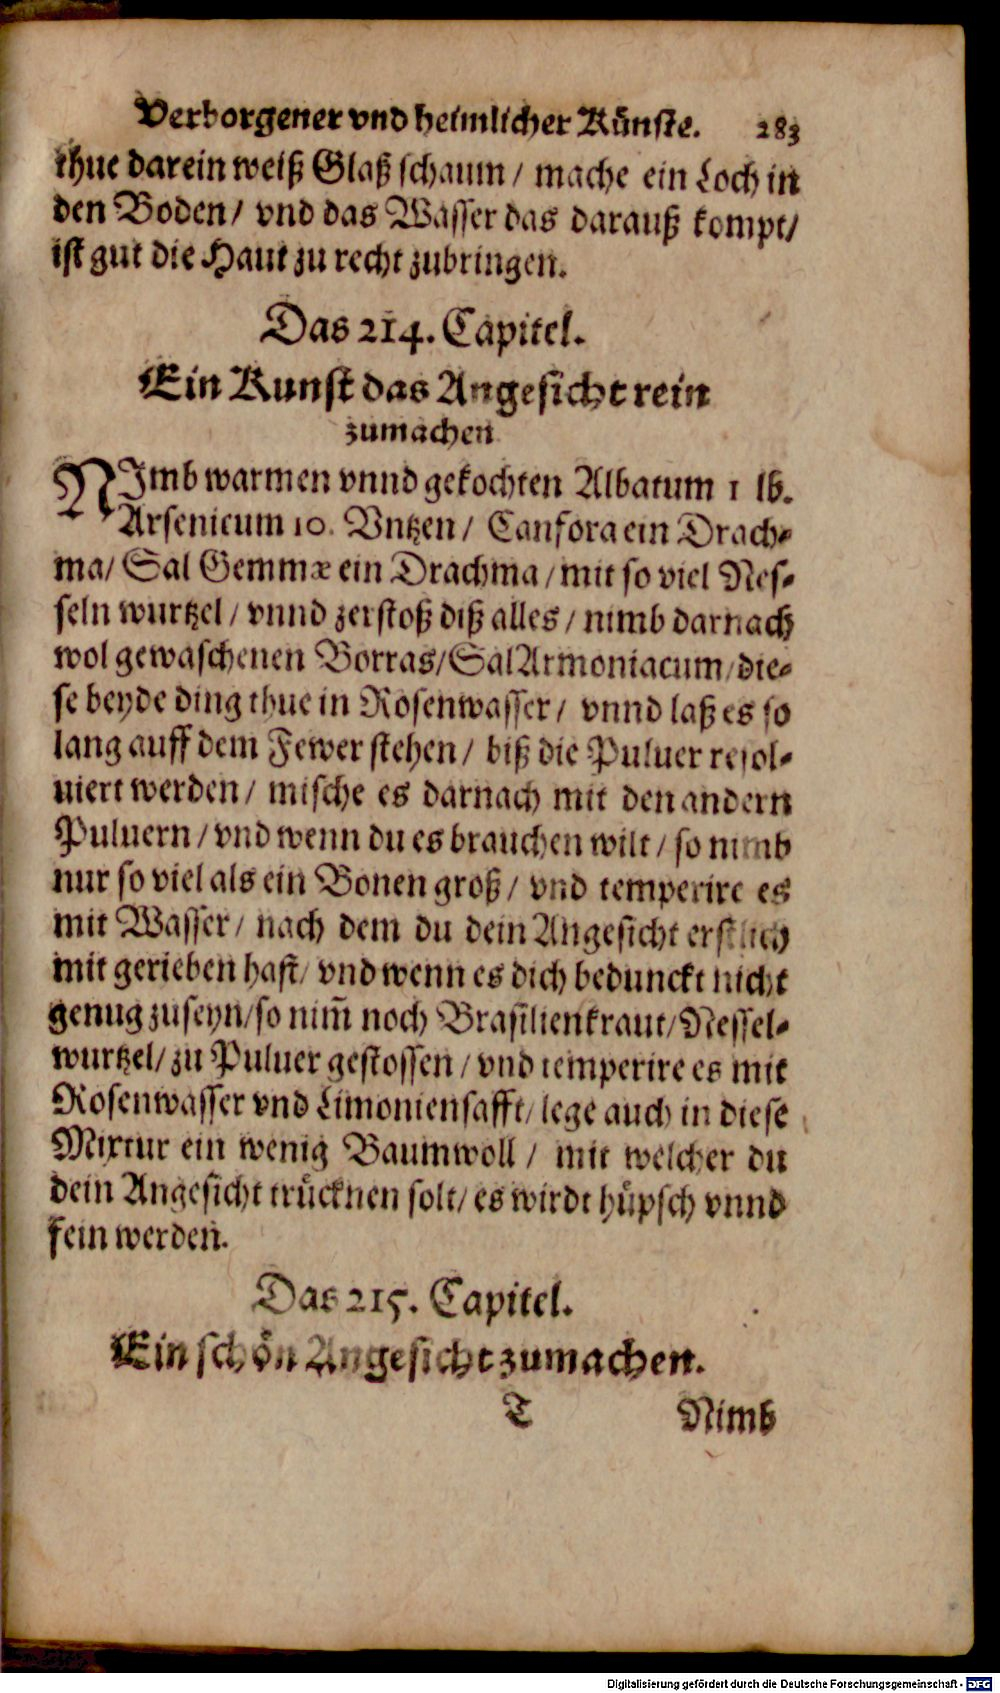 Verborgener vnd heimlicher Künste. 283
thue darein weiß Glaß schaum / mache ein Loch in
den Boden / vnd das Wasser das darauß kompt /
ist gut die Haut zu recht zubringen.
Das 214. Capitel.
Ein Kunst das Angesicht rein
zumachen
NImb warmen vnnd gekochten Albatum 1 lb.
Arsenicum 10. Vntzen / Canfora ein Drach-
ma / Sal Gemmæ ein Drachma / mit so viel Nes-
seln wurtzel / vnnd zerstoß diß alles / nimb darnach
wol gewaschenen Borras / Sal Armoniacum / die-
se beyde ding thue in Rosenwasser / vnnd laß es so
lang auff dem Fewer stehen / biß die Puluer resol-
uiert werden / mische es darnach mit den andern
Puluern / vnd wenn du es brauchen wilt / so nimb
nur so viel als ein Bonen groß / vnd temperire es
mit Wasser / nach dem du dein Angesicht erstlich
mit gerieben hast / vnd wenn es dich bedunckt nicht
genug zuseyn / so nim̃ noch Brasilienkraut / Nessel-
wurtzel / zu Puluer gestossen / vnd temperire es mit
Rosenwasser vnd Limoniensafft / lege auch in diese
Mixtur ein wenig Baumwoll / mit welcher du
dein Angesicht trücknen solt / es wirdt hüpsch vnnd
fein werden.
Das 215. Capitel.
Ein schön Angesicht zumachen.
T Nimb
Digitalisierung gefördert durch die Deutsche Forschungsgemeinschaft - DFG